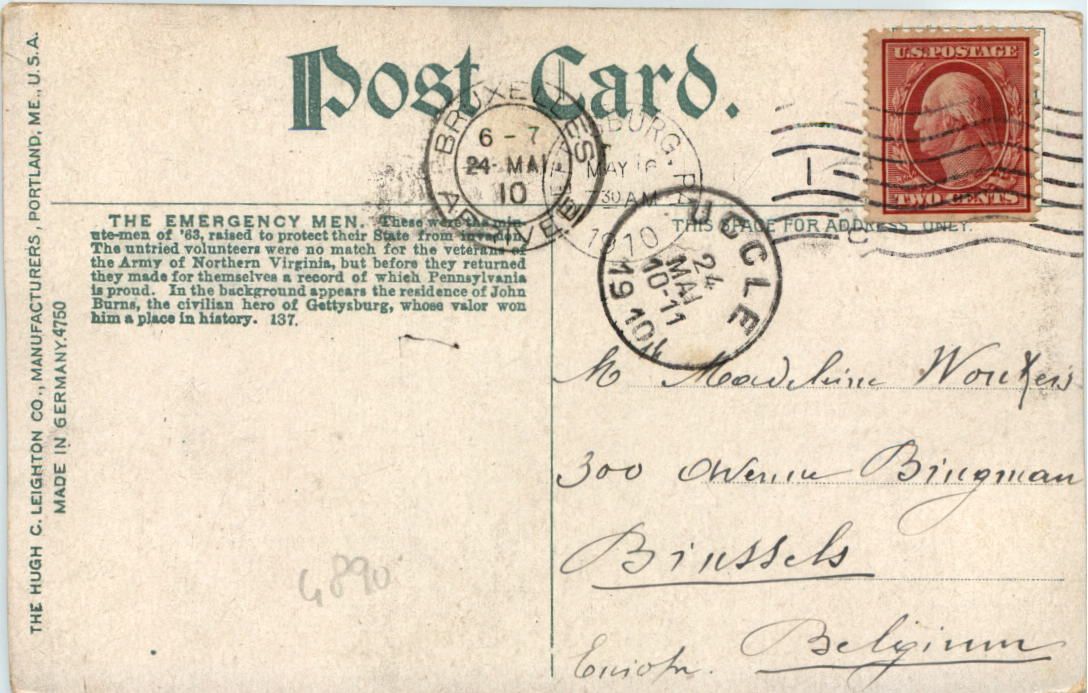 Post Card.
U.S. POSTAGE
TWO CENTS
BRUXELLES
6 - 7
24 MAI
10
ARRIVEE
SBURG, P
MAY 16
30 AM
1910
1
UCCLE
24
MAI
10-11
1910
THIS SPACE FOR ADDRESS ONLY.
THE EMERGENCY MEN. These were the min-
ute-men of '63, raised to protect their State from invasion.
The untried volunteers were no match for the veterans of
the Army of Northern Virginia, but before they returned
they made for themselves a record of which Pennsylvania
is proud. In the background appears the residence of John
Burns, the civilian hero of Gettysburg, whose valor won
him a place in history. 137.
THE HUGH C. LEIGHTON CO., MANUFACTURERS, PORTLAND, ME., U.S.A.
MADE IN GERMANY. 4750
M Madeleine Wouters
300 Avenue Bingman
Brussels
Belgium
Europe.
4890